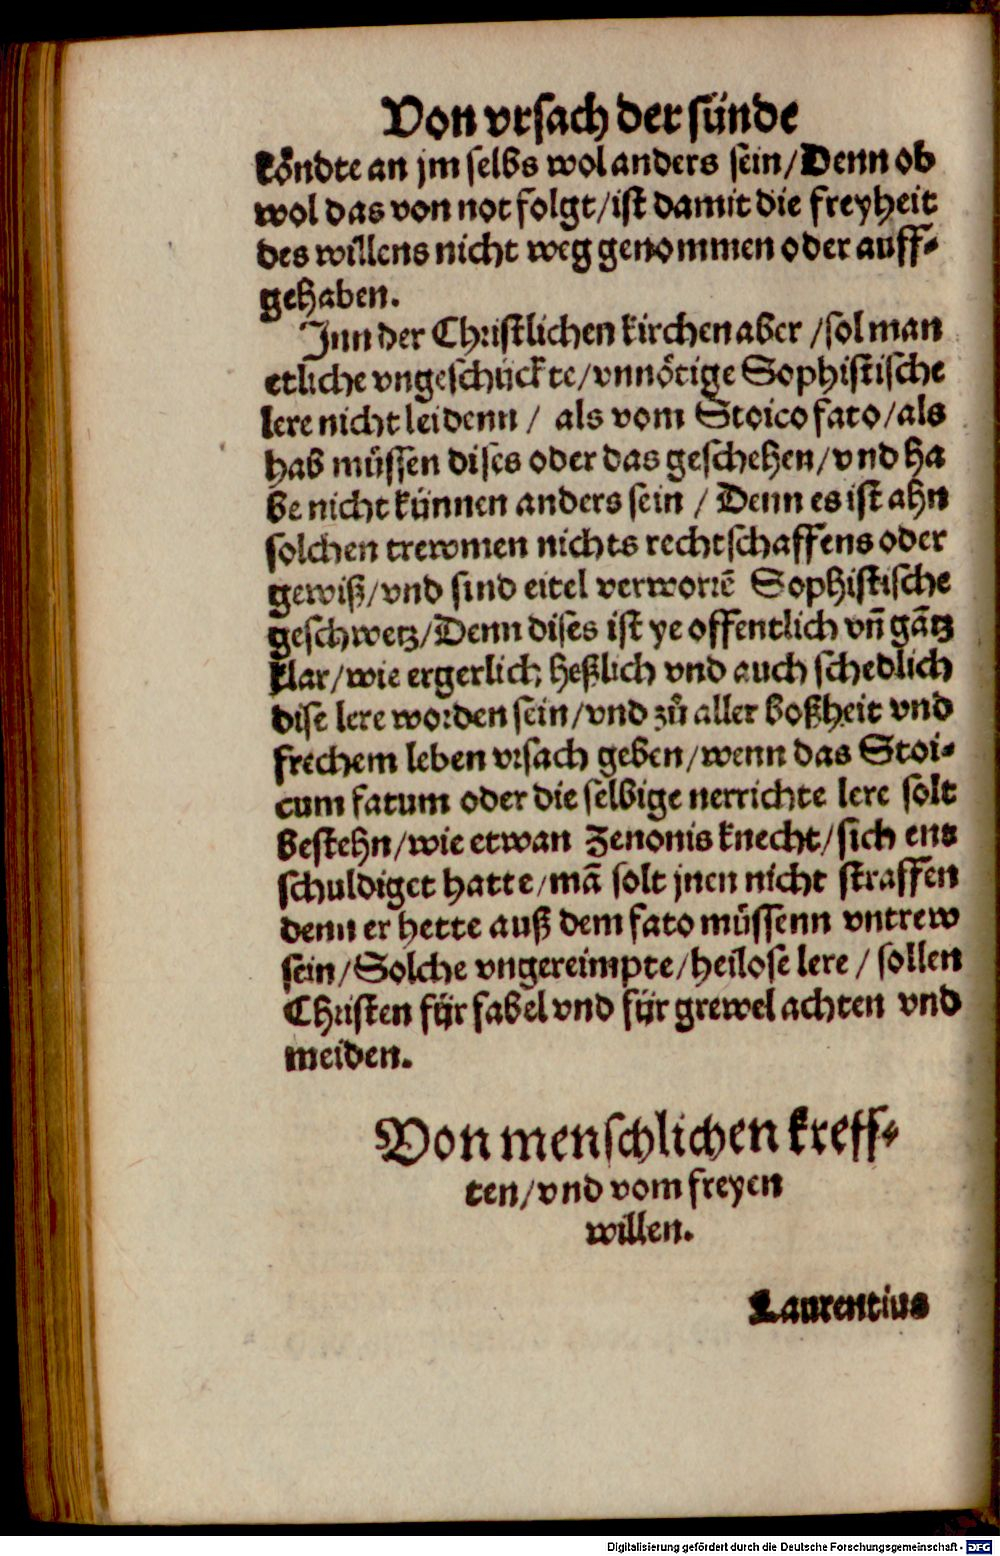 Von vrsach der sünde
köndte an jm selbs wol anders sein/Denn ob
wol das von not folgt/ist damit die freyheit
des willens nicht weg genommen oder auff-
gehaben.
Jnn der Christlichen kirchen aber /sol man
etliche vngeschückte/vnnötige Sophistische
lere nicht leidenn / als vom Stoico fato/als
hab müssen dises oder das geschehen/vnd ha
be nicht künnen anders sein / Denn es ist ahn
solchen trewmen nichts rechtschaffens oder
gewiß/vnd sind eitel verworrē Sophistische
geschwetz/Denn dises ist ye offentlich vn̄ gātz
klar/wie ergerlich heßlich vnd auch schedlich
dise lere worden sein/vnd zů aller boßheit vnd
frechem leben vrsach geben/wenn das Stoi-
cum fatum oder die selbige nerrichte lere solt
bestehn/wie etwan Zenonis knecht/sich ent
schuldiget hatte/mā solt jnen nicht straffen
denn er hette auß dem fato müssenn vntrew
sein/Solche vngereimpte/heilose lere / sollen
Christen für fabel vnd für grewel achten vnd
meiden.
Von menschlichen kreff-
ten/vnd vom freyen
willen.
Laurentius
Digitalisierung gefördert durch die Deutsche Forschungsgemeinschaft - DFG